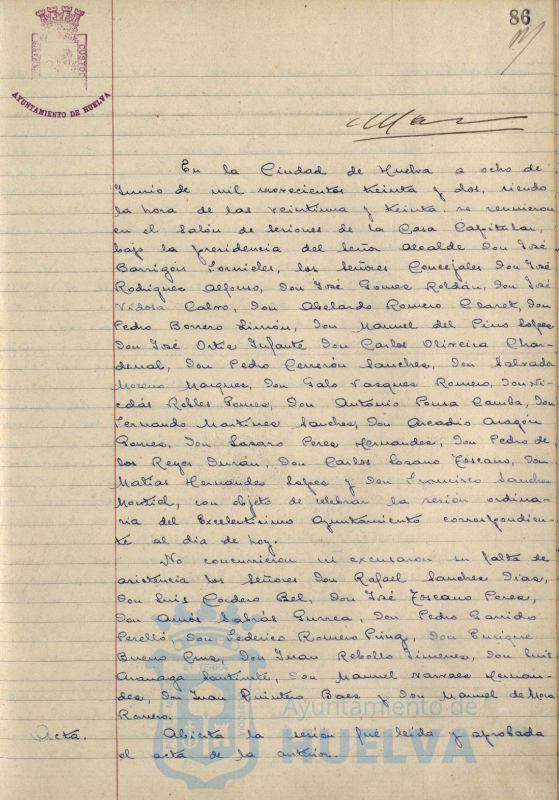 86
CUSTOS
AYUNTAMIENTO DE HUELVA
En la Ciudad de Huelva a ocho de
Junio de mil novecientos treinta y dos, siendo
la hora de las veintiuna y treinta, se reunieron
en el Salón de sesiones de la Casa Capitular,
bajo la presidencia del señor Alcalde Don José
Barrigón Fornieles, los señores Concejales Don José
Rodriguez Alfonso, Don José Gomez Roldán, Don José
Vidosa Calvo, Don Abelardo Romero Claret, Don
Pedro Borrero Limón, Don Manuel del Pino Lopez
Don José Ortiz Infante Don Carlos Oliveira Char-
denal, Don Pedro Cerrejón Sanchez, Don Salvador
Moreno Marquez, Don Galo Vazquez Romero, Don Ni-
colás Robles Gomez, Don Antonio Pousa Camba, Don
Fernando Martinez Sanchez, Don Arcadio Aragón
Gomez, Don Lazaro Perez Hernandez, Don Pedro de
los Reyes Durán, Don Carlos Lozano Toscano, Don
Matías Hernandez Lopez y Don Francisco Sanchez
Montiel, con objeto de celebrar la sesión ordina-
ria del Excelentísimo Ayuntamiento correspondien-
te al dia de hoy.
No concurrieron ni excusaron su falta de
asistencia los señores Don Rafael Sanchez Diaz,
Don Luis Cordero Bel, Don José Toscano Perez,
Don Amós Sabrás Gurrea, Don Pedro Garrido
Perelló, Don Federico Romero Ping, Don Enrique
Bueno Cruz, Don Juan Rebollo Jimenez, Don Luis
Aranaga Don Manuel Narvaez Hernan-
dez, Don Juan Quintero Baez y Don Manuel de Mora
Romero.
Acta. Abierta la sesión fué leída y aprobada
el acta de la anterior.
Ayuntamiento de
HUELVA